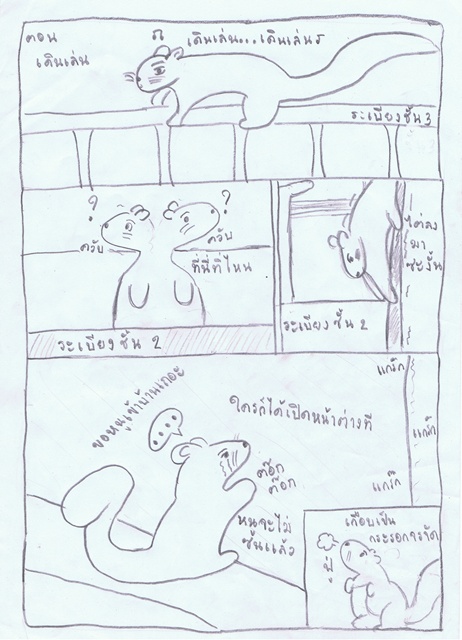 ตอน
เดินเล่น
เดินเล่น...เดินเล่นร
ระเบียงชั้น 3
?
?
ควับ
ควับ
ที่นี่ที่ไหน
ระเบียงชั้น 2
ไต่ลง
มา
ซะงั้น
ระเบียงชั้น 2
ขอหนูเข้าบ้านเถอะ
....
ใครก็ได้เปิดหน้าต่างที
ต๊อก
ต๊อก
หนูจะไม่
ซนแล้ว
แกร๊ก
แกร๊ก
แกร๊ก
เกือบเป็น
กระรอกจรจัด
ฟู่